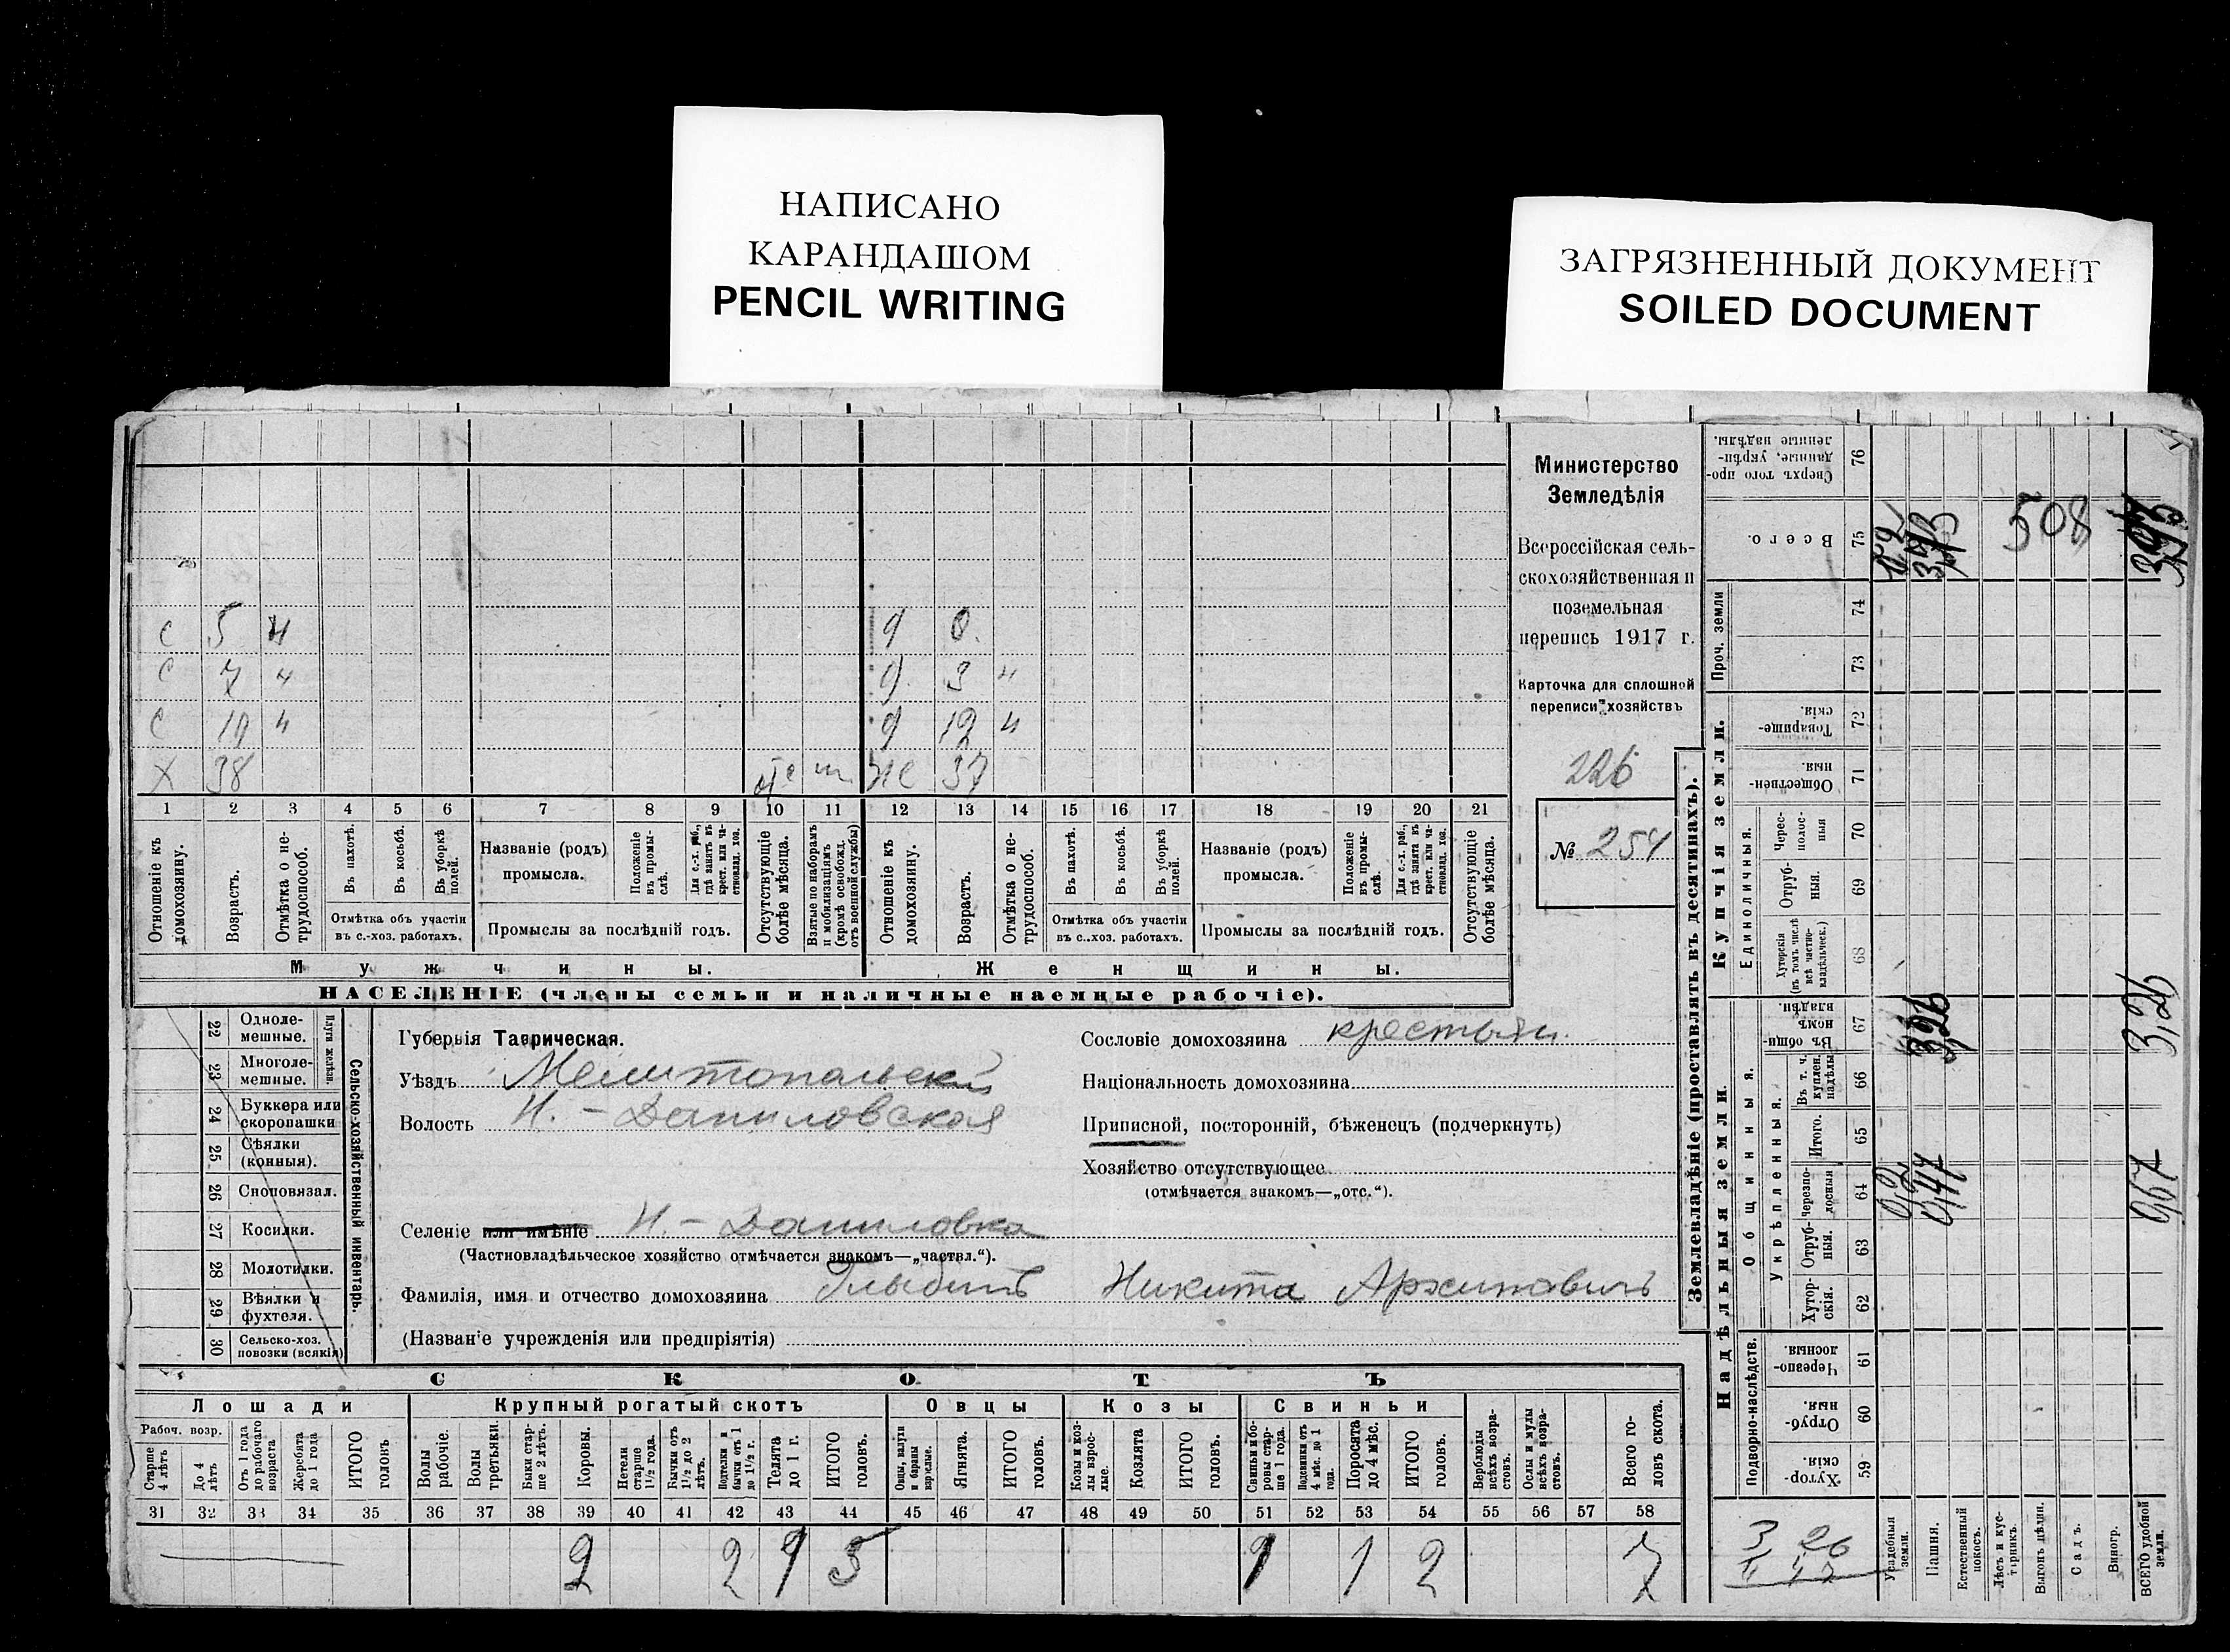 НАПИСАНО
КАРАНДАШОМ
PENCIL WRITING
ЗАГРЯЗНЕННЫЙ ДОКУМЕНТ
SOILED DOCUMENT
С 5 н д 0.
С 7 н д 3 н
С 10 н д 12 н
Х 38 отс м. же 37
1 2 3 4 5 6 7 8 9 10 11 12 13 14 15 16 17 18 19 20 21
Отношеніе къ домохозяину.
Возрастъ.
Отмѣтка о нетрудоспособ.
Въ пахотѣ.
Въ косьбѣ.
Въ уборкѣ полей.
Отмѣтка объ участіи
въ с.-хоз. работахъ.
Названіе (родъ)
промысла.
Положеніе въ промыслѣ.
Для с.-х. раб., гдѣ занятъ въ крест. или частновлад. хоз.
Промыслы за послѣдній годъ.
Отсутствующіе болѣе мѣсяца.
Взятые по наборамъ и мобилизаціямъ (кромѣ освобожд. отъ военной службы)
Отношеніе къ домохозяину.
Возрастъ.
Отмѣтка о нетрудоспособ.
Въ пахотѣ.
Въ косьбѣ.
Въ уборкѣ полей.
Отмѣтка объ участіи
въ с.-хоз. работахъ.
Названіе (родъ)
промысла.
Положеніе въ промыслѣ.
Для с.-х. раб., гдѣ занята въ крест. или частновлад. хоз.
Промыслы за послѣдній годъ.
Отсутствующіе болѣе мѣсяца.
Мужчины.
Женщины.
НАСЕЛЕНІЕ (члены семьи и наличные наемные рабочіе).
Министерство
Земледѣлія
Всероссійская сель-
скохозяйственная и
поземельная
перепись 1917 г.
Карточка для сплошной
переписи хозяйствъ
226
№ 254
22 Одноле-
мешные.
23 Многоле-
мешные.
Плуги желѣзн.
24 Буккера или
скоропашки
25 Сѣялки
(конныя).
26 Сноповязал.
27 Косилки.
28 Молотилки.
29 Вѣялки и
фухтеля.
30 Сельско-хоз.
повозки (всякія)
Сельско-хозяйственный инвентарь.
Губернія Таврическая.
Уѣздъ Мелитопольский
Волость Н.-Даниловская
Селеніе или имѣніе Н.-Даниловка
(Частновладѣльческое хозяйство отмѣчается знакомъ—„частвл.“).
Фамилія, имя и отчество домохозяина Глыбинъ Никита Архиповичъ
(Названіе учрежденія или предпріятія)
Сословіе домохозяина крестьян.
Національность домохозяина
Приписной, посторонній, бѣженецъ (подчеркнуть)
Хозяйство отсутствующее
(отмѣчается знакомъ—„отс.“).
СКОТЪ
Лошади
Крупный рогатый скотъ
Овцы
Козы
Свиньи
Рабоч. возр.
Старше 4 лѣтъ
До 4 лѣтъ
Отъ 1 года до рабочаго возраста
Жеребята до 1 года
ИТОГО головъ
Волы рабочіе.
Волы третьяки.
Быки старше 2 лѣтъ.
Коровы.
Нетели старше 1½ года.
Бычки отъ 1½ до 2 лѣтъ.
Подтелки и бычки отъ 1 до 1½ г.
Телята до 1 г.
ИТОГО головъ.
Овцы, валухи и бараны взрослые.
Ягнята.
ИТОГО головъ.
Козы и козлы взрослые.
Козлята
ИТОГО головъ.
Свиньи и боровы старше 1 года.
Подсвинки отъ 4 мѣс. до 1 года.
Поросята до 4 мѣс.
ИТОГО головъ.
Верблюды всѣхъ возрастовъ.
Ослы и мулы всѣхъ возрастовъ.
Всего головъ скота.
31 32 33 34 35 36 37 38 39 40 41 42 43 44 45 46 47 48 49 50 51 52 53 54 55 56 57 58
2 2 1 5 1 1 2 7
Землевладѣніе (проставлять въ десятинахъ).
Купчія земли.
Надѣльныя земли.
Сверхъ того проданные, укрѣпленные надѣлы.
76
Всего.
75
Проч. земли
74
73
Товарищескія.
72
Общественныя.
71
Единоличныя.
Чересполосныя
70
Отрубныя.
69
Хуторскія (въ томъ числѣ всѣ частновладѣльческ.)
68
Общинныя.
Въ общиномъ владѣн.
67
Укрѣпленныя.
Въ т. ч. куплен. надѣлы
66
Итого.
65
Черезполосныя
64
Отрубныя.
63
Хуторскія.
62
Подворно-наслѣдств.
Черезполосныя.
61
Отрубныя.
60
Хуторскія.
59
508
3,26
3,26
0,2
0,47
0,67
3 26
Усадебныя земли.
Пашня.
Естественный покосъ.
Лѣсъ и кустарникъ.
Выгонъ цѣлин.
Садъ.
Виногр.
ВСЕГО удобной земли.